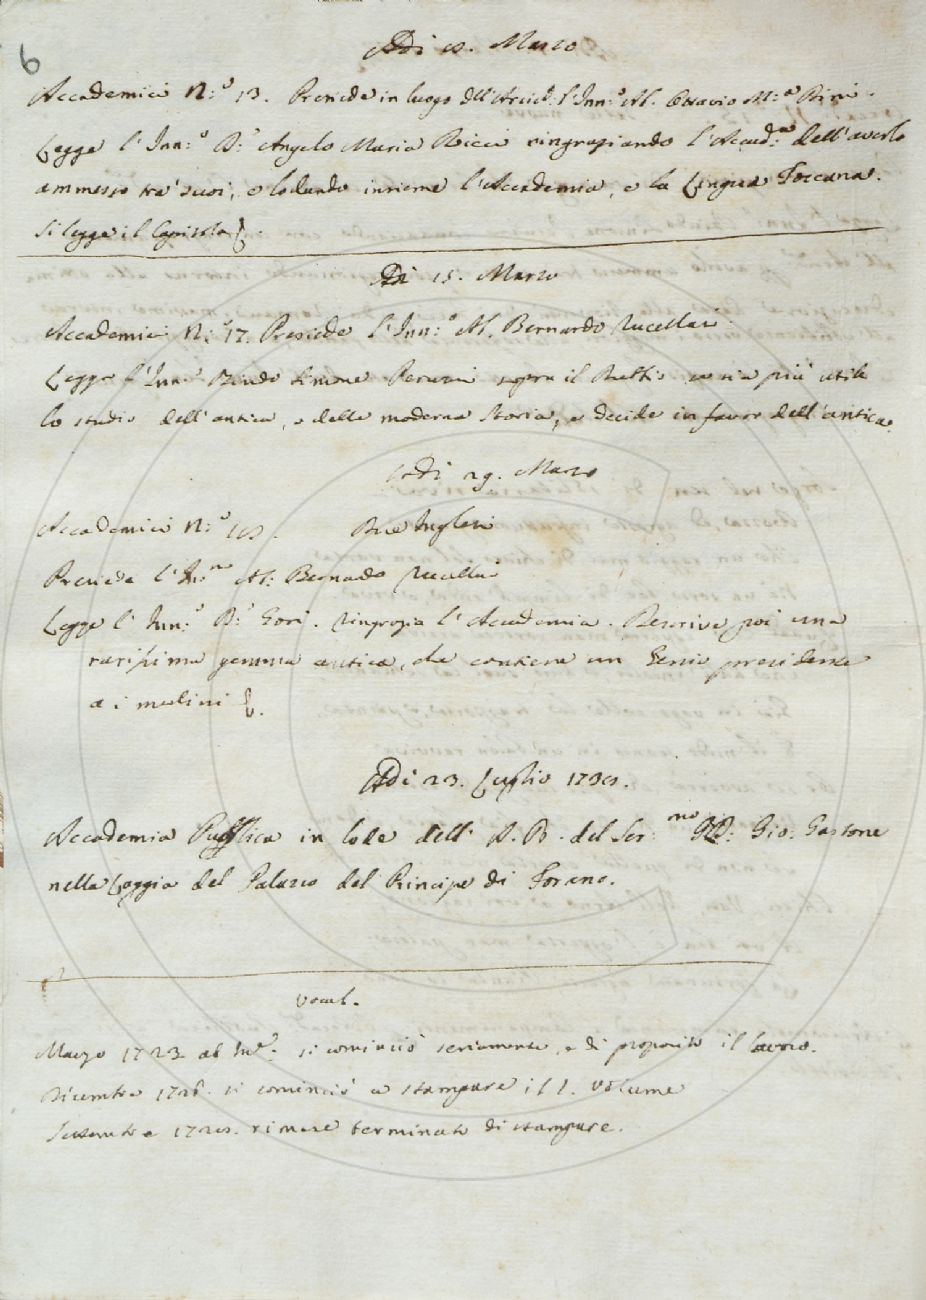 6
Adi 8. Marzo
Accademici N:º 13. Presiede in luogo dell'Arcid: l'Inn:º Al. Ottavio M:ª
Legge l'Inn:º D:r Angelo Maria Ricci ringraziando l'Accad:ª dell'averlo
ammesso tra' suoi, e lodando insieme l'Accademia, e la Lingua Toscana.
Si legge il Capitolo
Adi 15. Marzo
Accademici N:º 17. Presiede l'Inn:º Al. Bernardo Rucellai
Legge l'Inn:º Bindo Simone Peruzzi sopra il se sia più utile
lo studio dell'antica, o della moderna Storia, e decide in favor dell'antica.
Adi 29. Marzo
Accademici N:º 18. Due Inglesi
Presiede l'In:no Al: Bernardo Rucellai
Legge l'Inn:º D:r Gori. Ringrazia l'Accademia. Descrive poi una
rarissima gemma antica, che contiene un Genio presidente
a i mulini
Adi 23. Luglio 1738.
Accademia Pubblica in lode dell' A. R. del Ser:mo GD: Gio: Gastone
nella Loggia del Palazzo del Principe di Forano.
Vocab.
Marzo 1723 ab Inc: si cominciò seriamente, e di proposito il lavoro.
Dicembre 1726. si cominciò a stampare il I. Volume
Settembre 1738. rimase terminato di stampare.